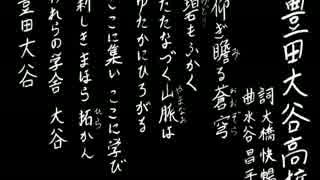 豊田大谷高校
詞 大橋快暢
曲 水谷昌平
み おおぞら
仰ぎ瞻る蒼穹
碧もふかく
やまなみ
たたなづく山脈は
ゆたかにひろがる
ここに集い ここに学び
ひら
新しきまほら拓かん
われらの学舎 大谷
豊田大谷